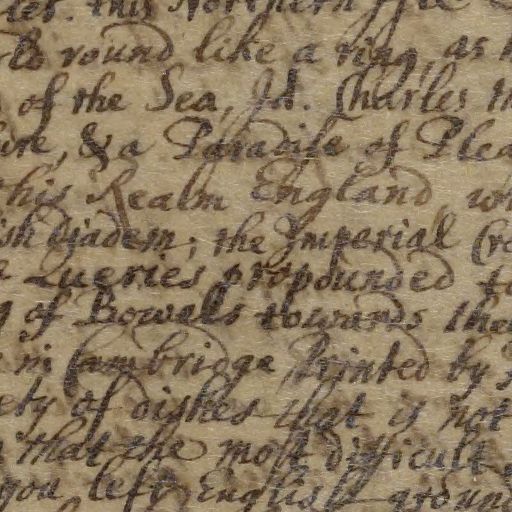 this Northern
round like a ring, as
of the Sea, Id. Charles
& a Paradise of Plea
this Realm England, wh
ish diadem, the Imperial Cro
Queries propounded to
of Bowells towards the
in Cambridge Printed by
ety of dishes that is not
that the most difficult
you left English ground